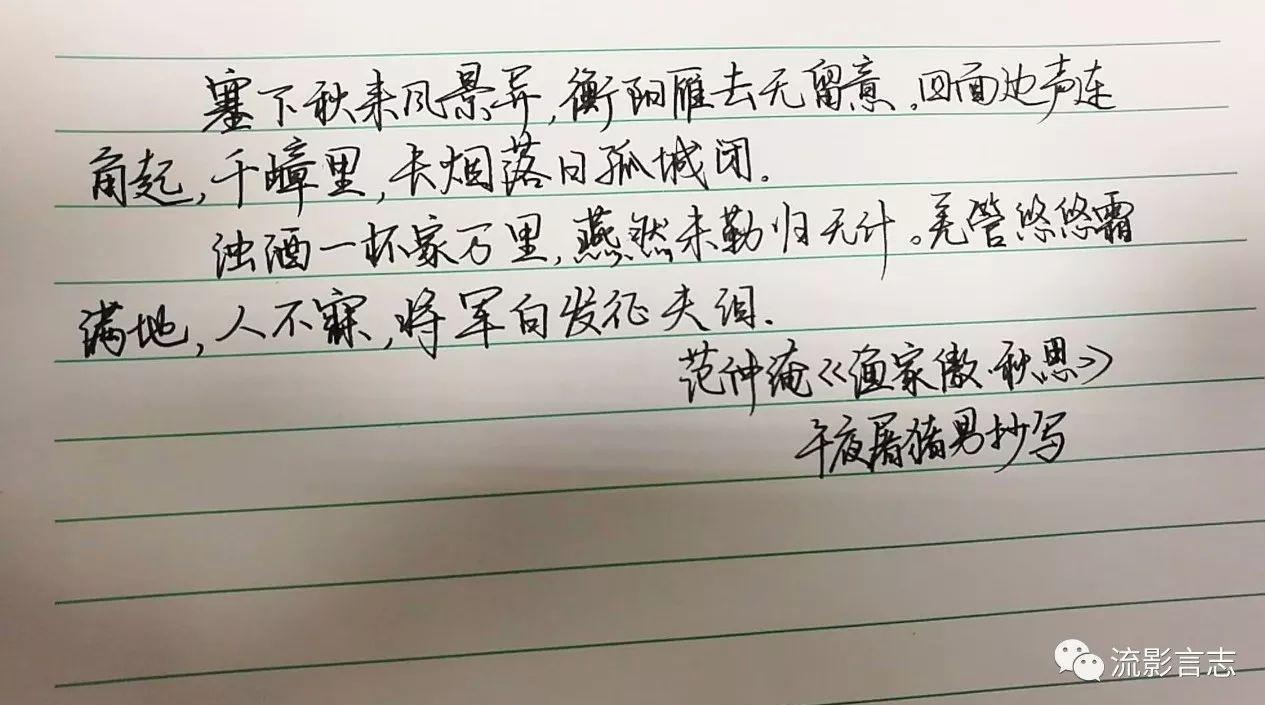 塞下秋来风景异,衡阳雁去无留意。四面边声连
角起,千嶂里,长烟落日孤城闭.
浊酒一杯家万里,燕然未勒归无计。羌管悠悠霜
满地,人不寐,将军白发征夫泪.
范仲淹《渔家傲·秋思》
午夜屠猪男抄写
流影言志